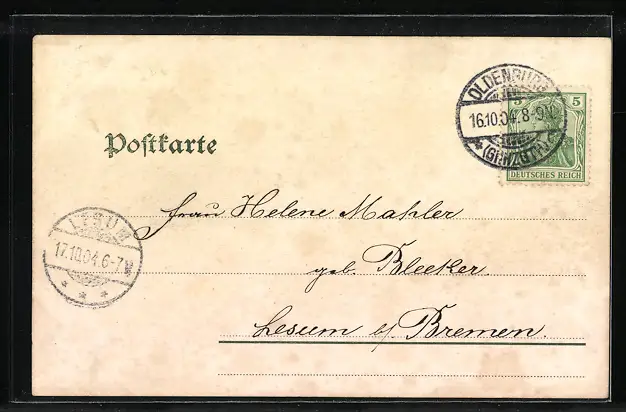 OLDENBURG
5 5
16.10.04. 8-9N.
(GRHZGTH.)
DEUTSCHES REICH
Postkarte
Frau Helene Mahler
LESUM
17.10.04. 6-7
geb. Bleeker
Lesum b/ Bremen.